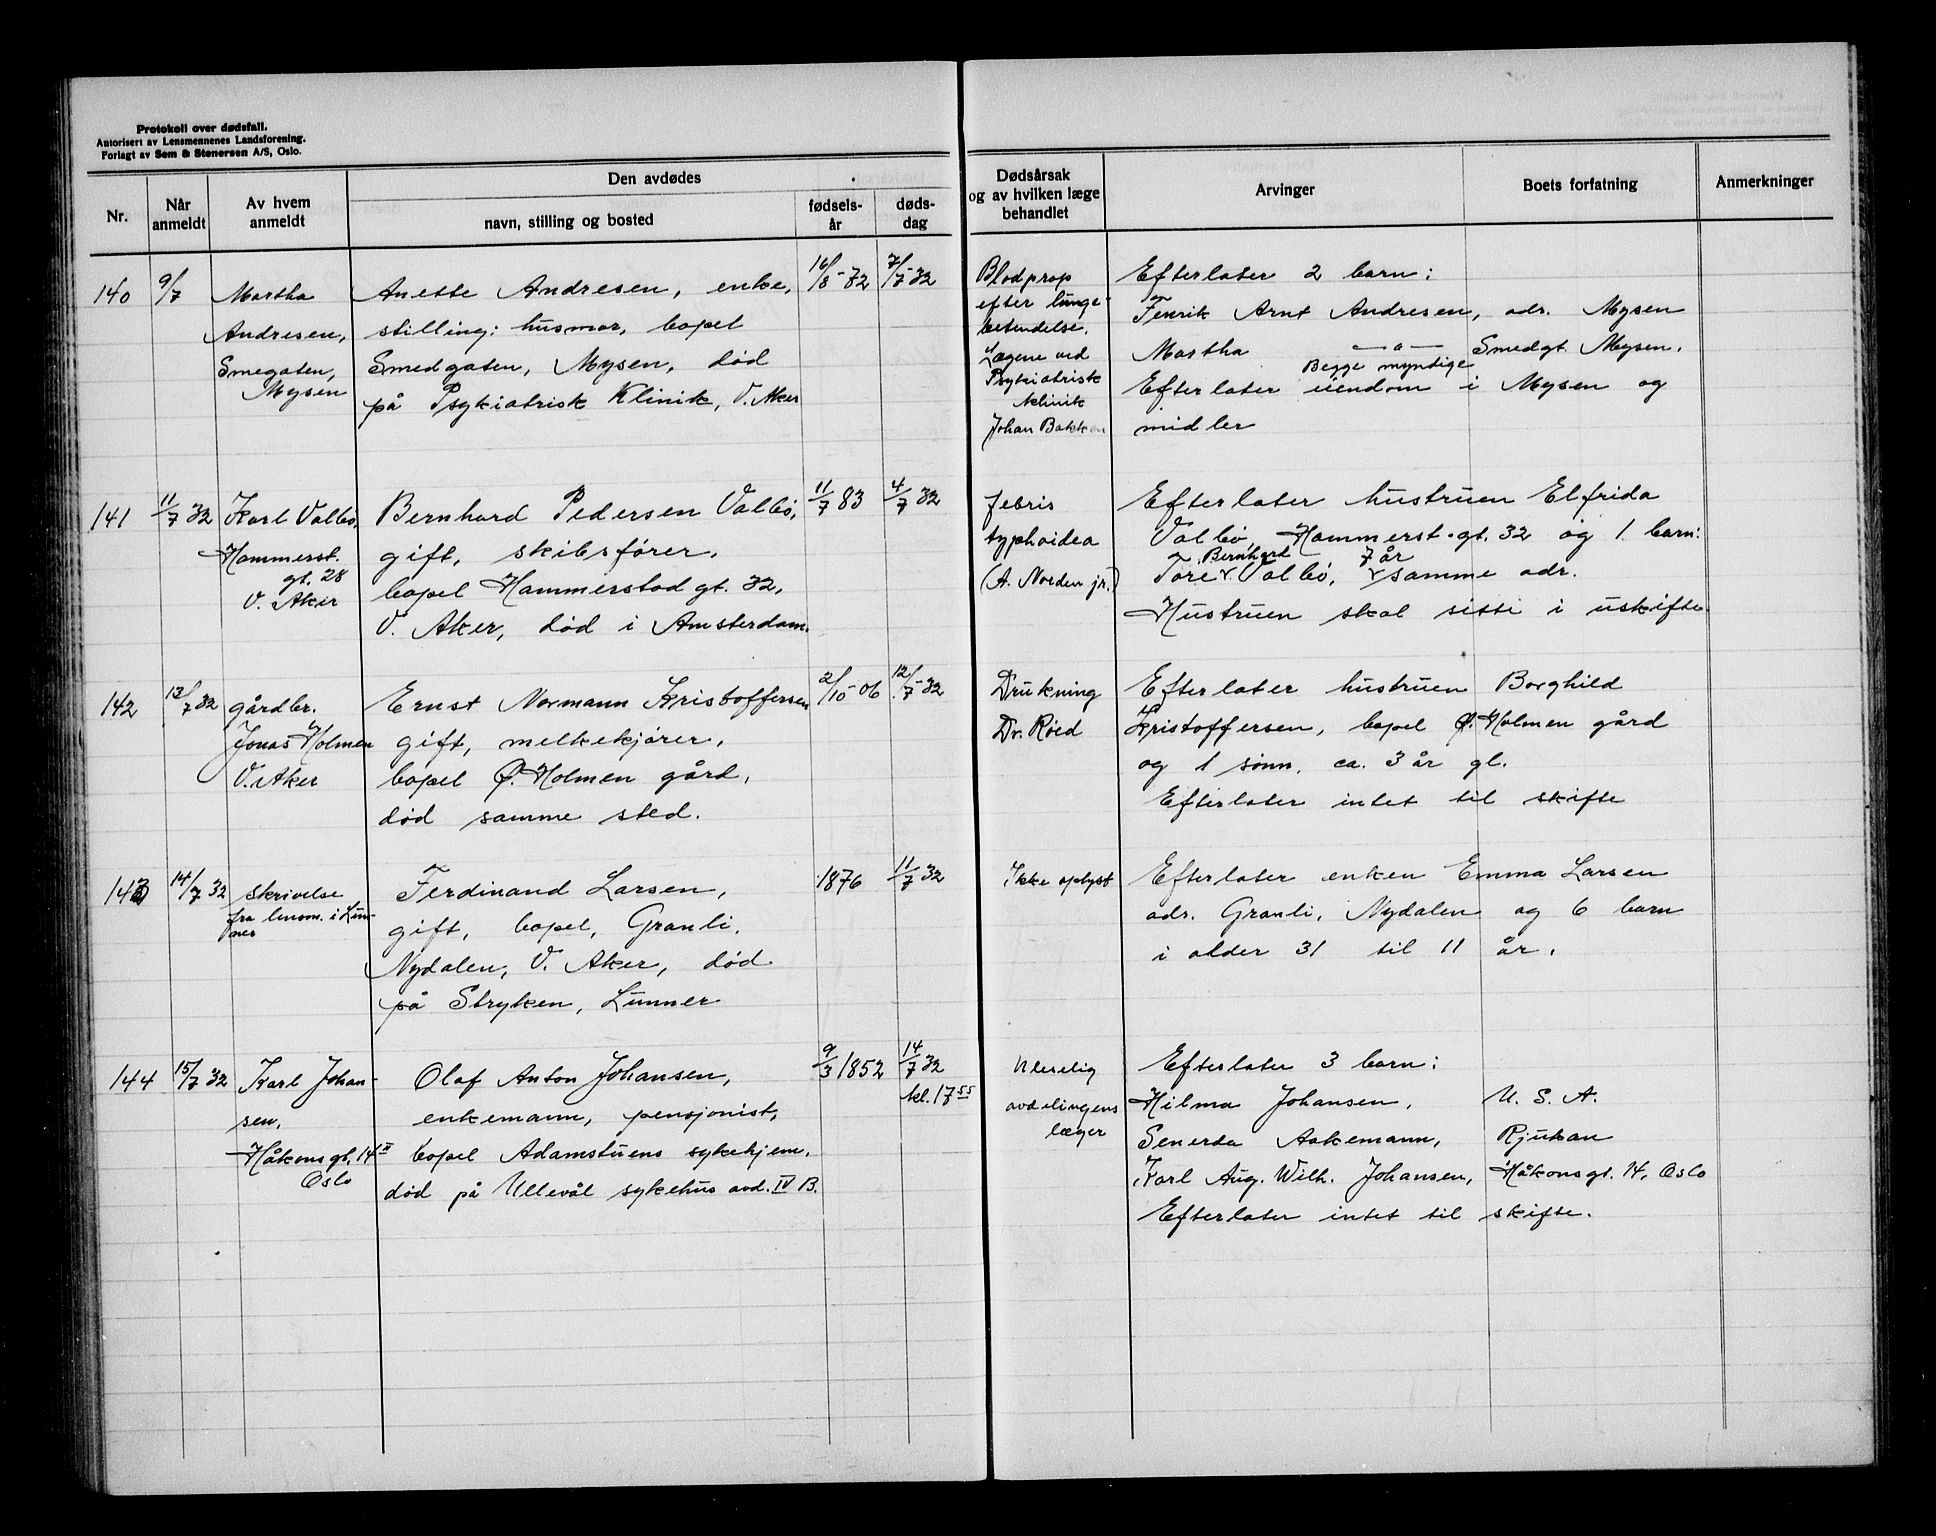 Protokoll over dødsfall.
Autorisert av Lensmennenes Landsforening.
Forlagt av Sem & Stenersen A/S, Oslo.
Nr.
Når anmeldt
Av hvem anmeldt
Den avdødes
navn, stilling og bosted
fødsels-år
døds-dag
Dødsårsak og av hvilken læge behandlet
Arvinger
Boets forfatning
Anmerkninger
140
9/7
Martha
Andresen,
Smegaten,
Mysen
Anette Andresen, enke,
stilling: husmor, bopel
Smedgaten, Mysen, død
på Psykiatrisk Klinik, V. Aker
16/8-72
7/7-32
Blodprop
efter lunge-
betendelse.
Lægene ved
Psykiatrisk
klinik
Johan Bakken
Efterlater 2 barn:
Fenrik Arnt Andresen, adr. Mysen
Martha —„— Smedgt. Mysen.
Begge myndige
Efterlater eiendom i Mysen og
midler
141
11/7 32
Karl Valbø,
Hammerst.
gt. 28
V. Aker
Bernhard Pedersen Valbø,
gift, skibsfører,
bopel Hammerstad gt. 32,
V. Aker, død i Amsterdam.
11/7 83
4/7 32
febris
typhoidea
(A. Norden jr.)
Efterlater hustruen Elfrida
Valbø, Hammerst.gt. 32 og 1 barn:
Bernhard 7 år
Tore Valbø, samme adr.
Hustruen skal sitte i uskifte
142
13/7 32
gårdbr.
Jonas Holmen
V. Aker
Ernst Normann Kristoffersen
gift, melkekjører,
bopel Ø. Holmen gård,
død samme sted.
2/10-06
12/7-32
Drukning
Dr. Røed
Efterlater hustruen Borghild
Kristoffersen, bopel Ø. Holmen gård
og 1 sønn, ca. 3 år gl.
Efterlater intet til skifte
143
14/7 32
skrivelse
fra lensm. i Lun-
ner
Ferdinand Larsen,
gift, bopel, Granli,
Nydalen, V. Aker, død
på Stryken, Lunner
1876
11/7 32
Ikke oplyst
Efterlater enken Emma Larsen
adr. Granli, Nydalen og 6 barn
i alder 31 til 11 år.
144
15/7 32
Karl Johan-
sen,
Håkonsgt. 14 II
Oslo
Olaf Anton Johansen,
enkemann, pensjonist,
bopel Adamstuens sykehjem,
død på Ullevål sykehus avd. IV B.
9/3 1852
14/7 32
kl. 17 55
Uleselig
avdelingens
læger
Efterlater 3 barn:
Hilma Johansen, U. S. A.
Senerda Aakemann, Rjukan
Karl Aug. Wilh. Johansen, Håkonsgt. 14, Oslo
Efterlater intet til skifte.